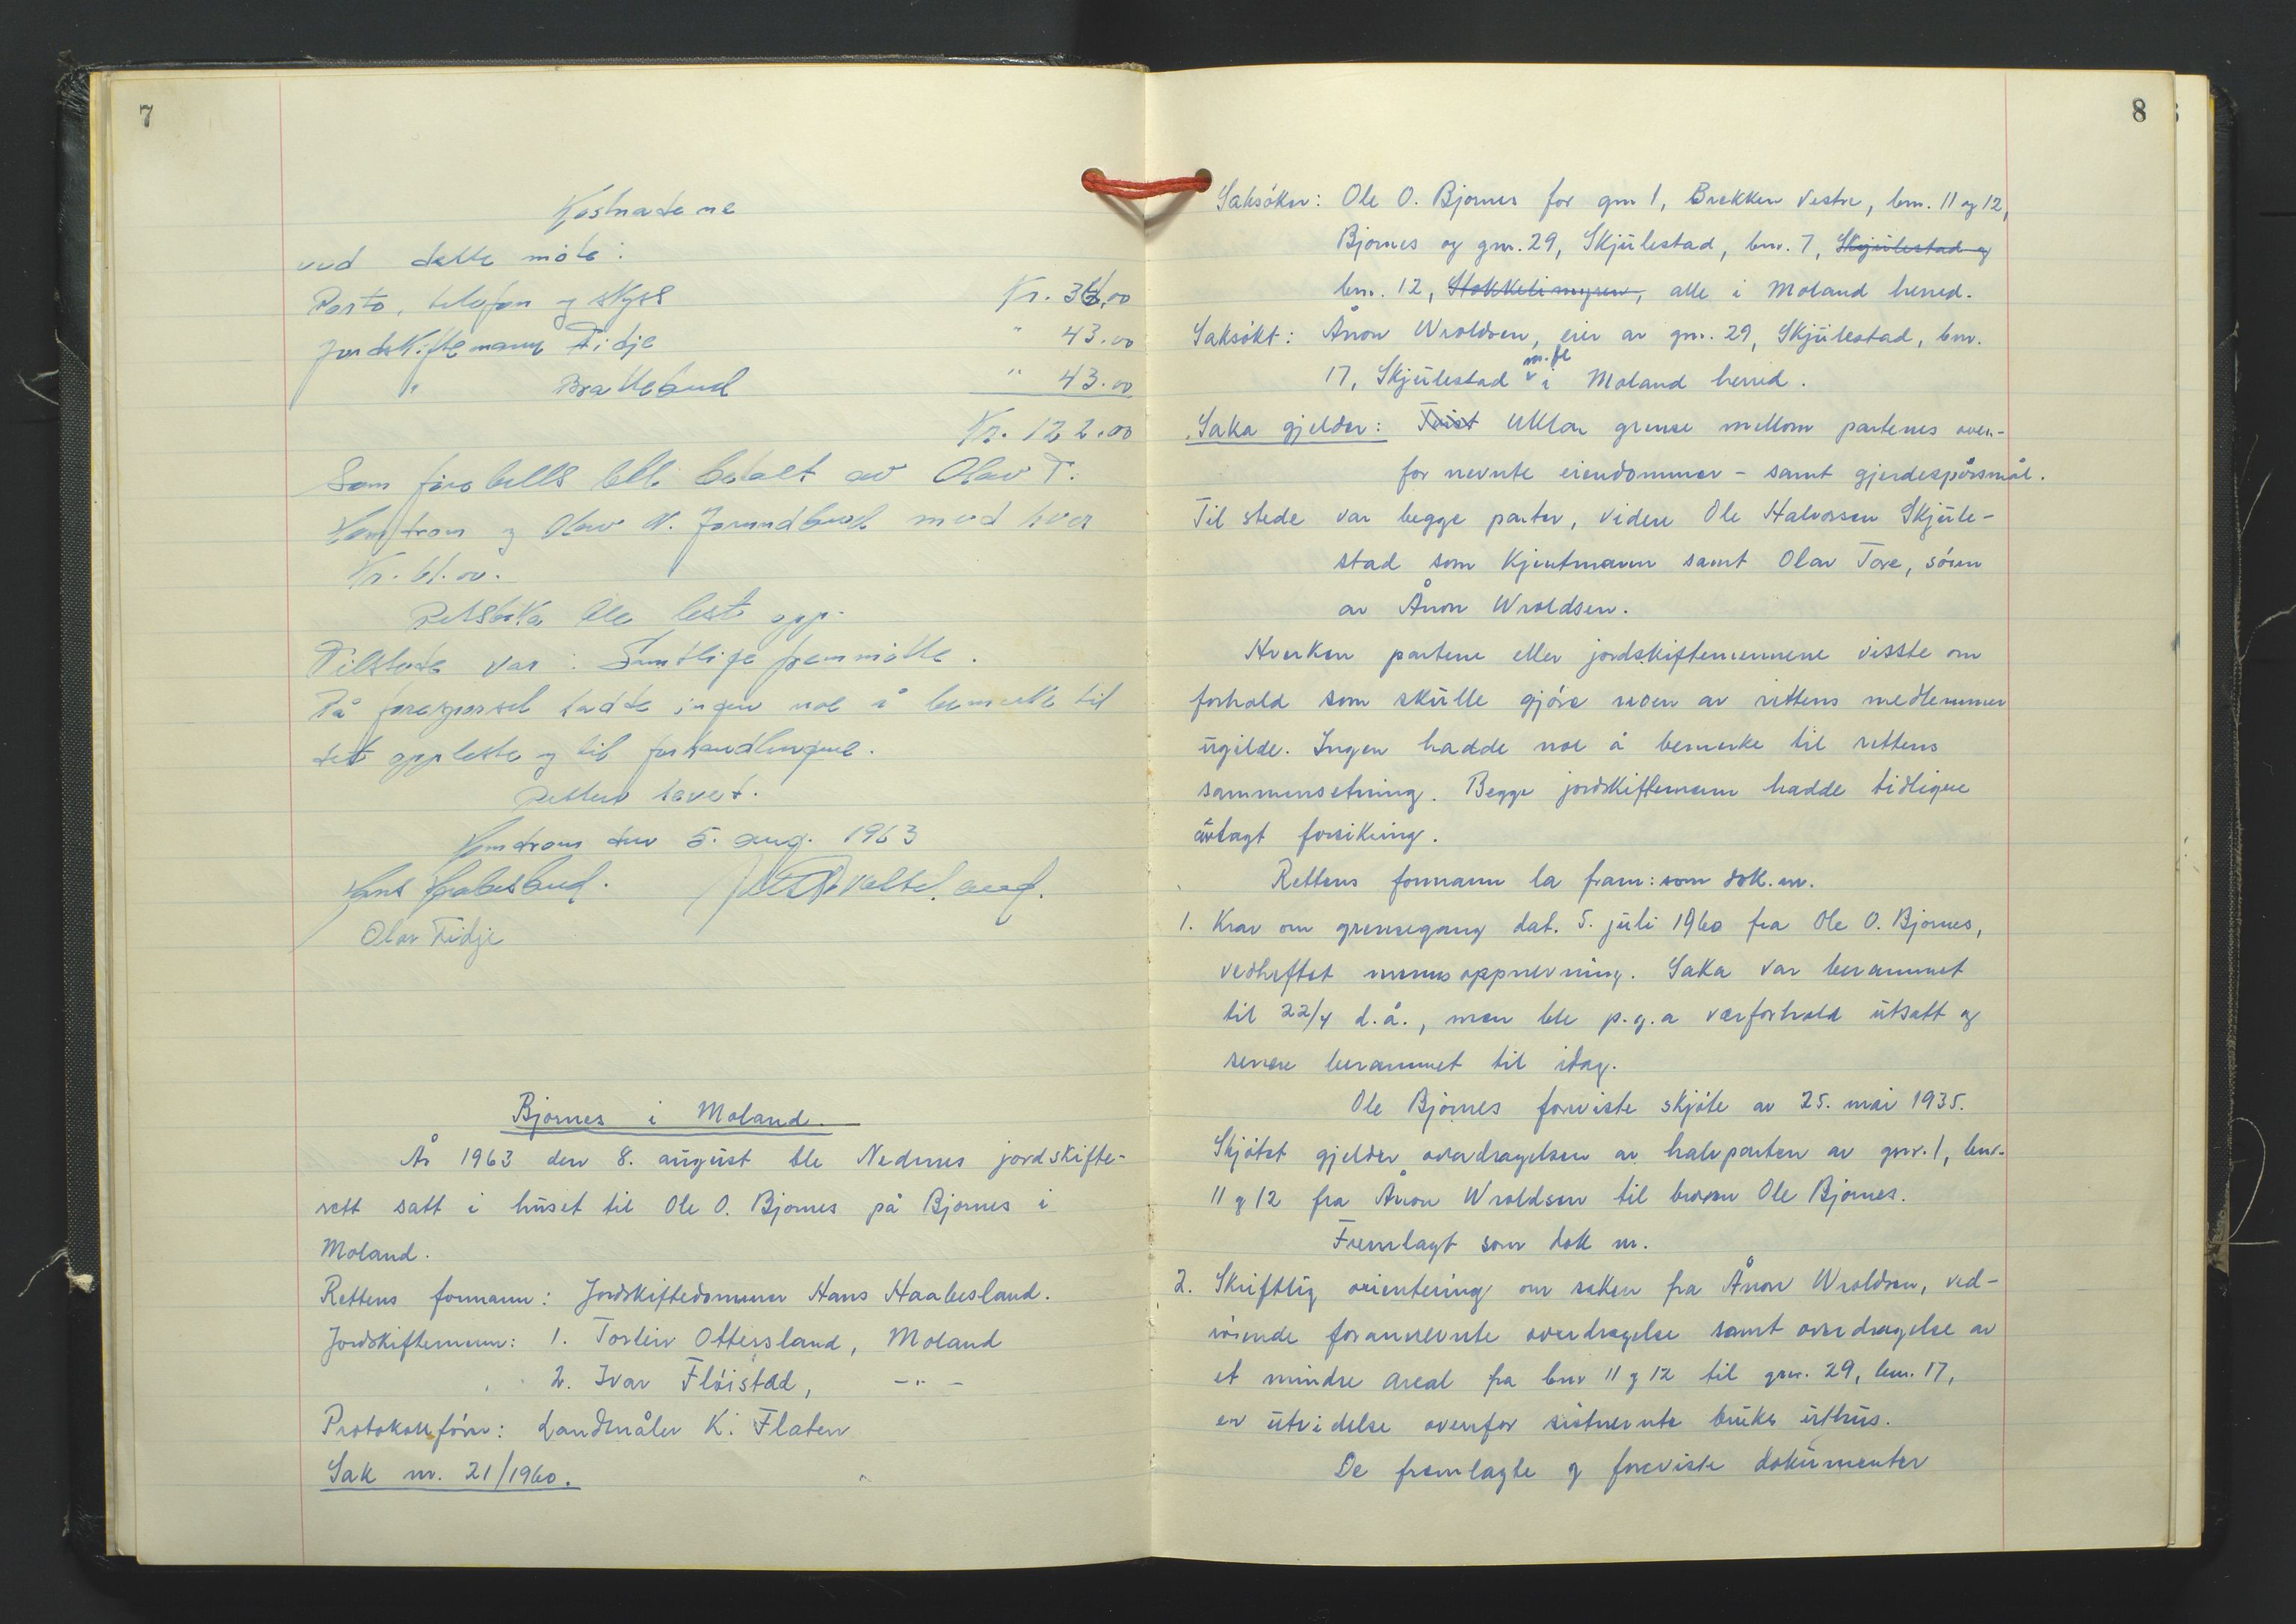 7
Kostnadene
ved dette møte:
Porto, telefon og skyss Kr. 36,00
Jordskiftemann Tidje " 43.00
" Brattland " 43.00
Kr. 122.00
Som förebells ble betalt av Olav T.
og Olav N. med hver
Kr. 61.00.
Rettsboka ble lest opp.
Tilstede var: Samtlige fremmötte.
På forespørsel hadde ingen noe å bemerke til
det oppleste og til forhandlingene.
Retten hevet.
den 5. aug. 1963
Hans Haabesland.
Olav Tidje
Bjornes i Moland.
År 1963 den 8. august ble Nedenes jordskifte-
rett satt i huset til Ole O. Bjornes på Bjornes i
Moland.
Rettens formann: Jordskiftedommer Hans Haabesland.
Jordskiftemenn: 1. Torleiv Ottersland, Moland
2. Ivar Flöistad, -"-
Protokollförer: Landmåler K. Flaten
Sak nr. 21/1960.
8
Saksöker: Ole O. Bjornes for gnr 1, Brekken Vestre, bnr. 11 og 12,
Bjornes og gnr. 29, Skjulestad, bnr. 7, Skjulestad og
bnr. 12, Stokkelimyren, alle i Moland herred.
Saksökt: Ånon Wroldsen, eier av gnr. 29, Skjulestad, bnr.
17, Skjulestad m. fl i Moland herred.
Saka gjelder: Tvist Uklar grense mellom partenes oven-
for nevnte eiendommer - samt gjerdespörsmål.
Til stede var begge parter, videre Ole Halvorsen Skjule-
stad som Kjentmann samt Olav Tore, sönn
av Ånon Wroldsen.
Hverken partene eller jordskiftemennene visste om
forhold som skulle gjöre noen av rettens medlemmer
ugilde. Ingen hadde noe å bemerke til rettens
sammensetning. Begge jordskiftemenn hadde tidligere
avlagt forsikring.
Rettens formann la fram: som dok. nr.
1. Krav om grensegang dat. 5. juli 1960 fra Ole O. Bjornes,
vedheftet menns oppnevning. Saka var berammet
til 22/4 d.å., men ble p.g.a værforhold utsatt og
senere berammet til idag.
Ole Bjornes foreviste skjöte av 25. mai 1935.
Skjötet gjelder overdragelsen av halvparten av gnr. 1, bnr.
11 og 12 fra Ånon Wroldsen til broren Ole Bjornes.
Fremlagt som dok nr.
2. Skriftlig orientering om saken fra Ånon Wroldsen, ved-
rörende forannevnte overdragelse samt overdragelse av
et mindre areal fra bnr 11 og 12 til gnr. 29, bnr. 17,
en utvidelse ovenfor sistnevnte bruks uthus.
De fremlagte og foreviste dokumenter